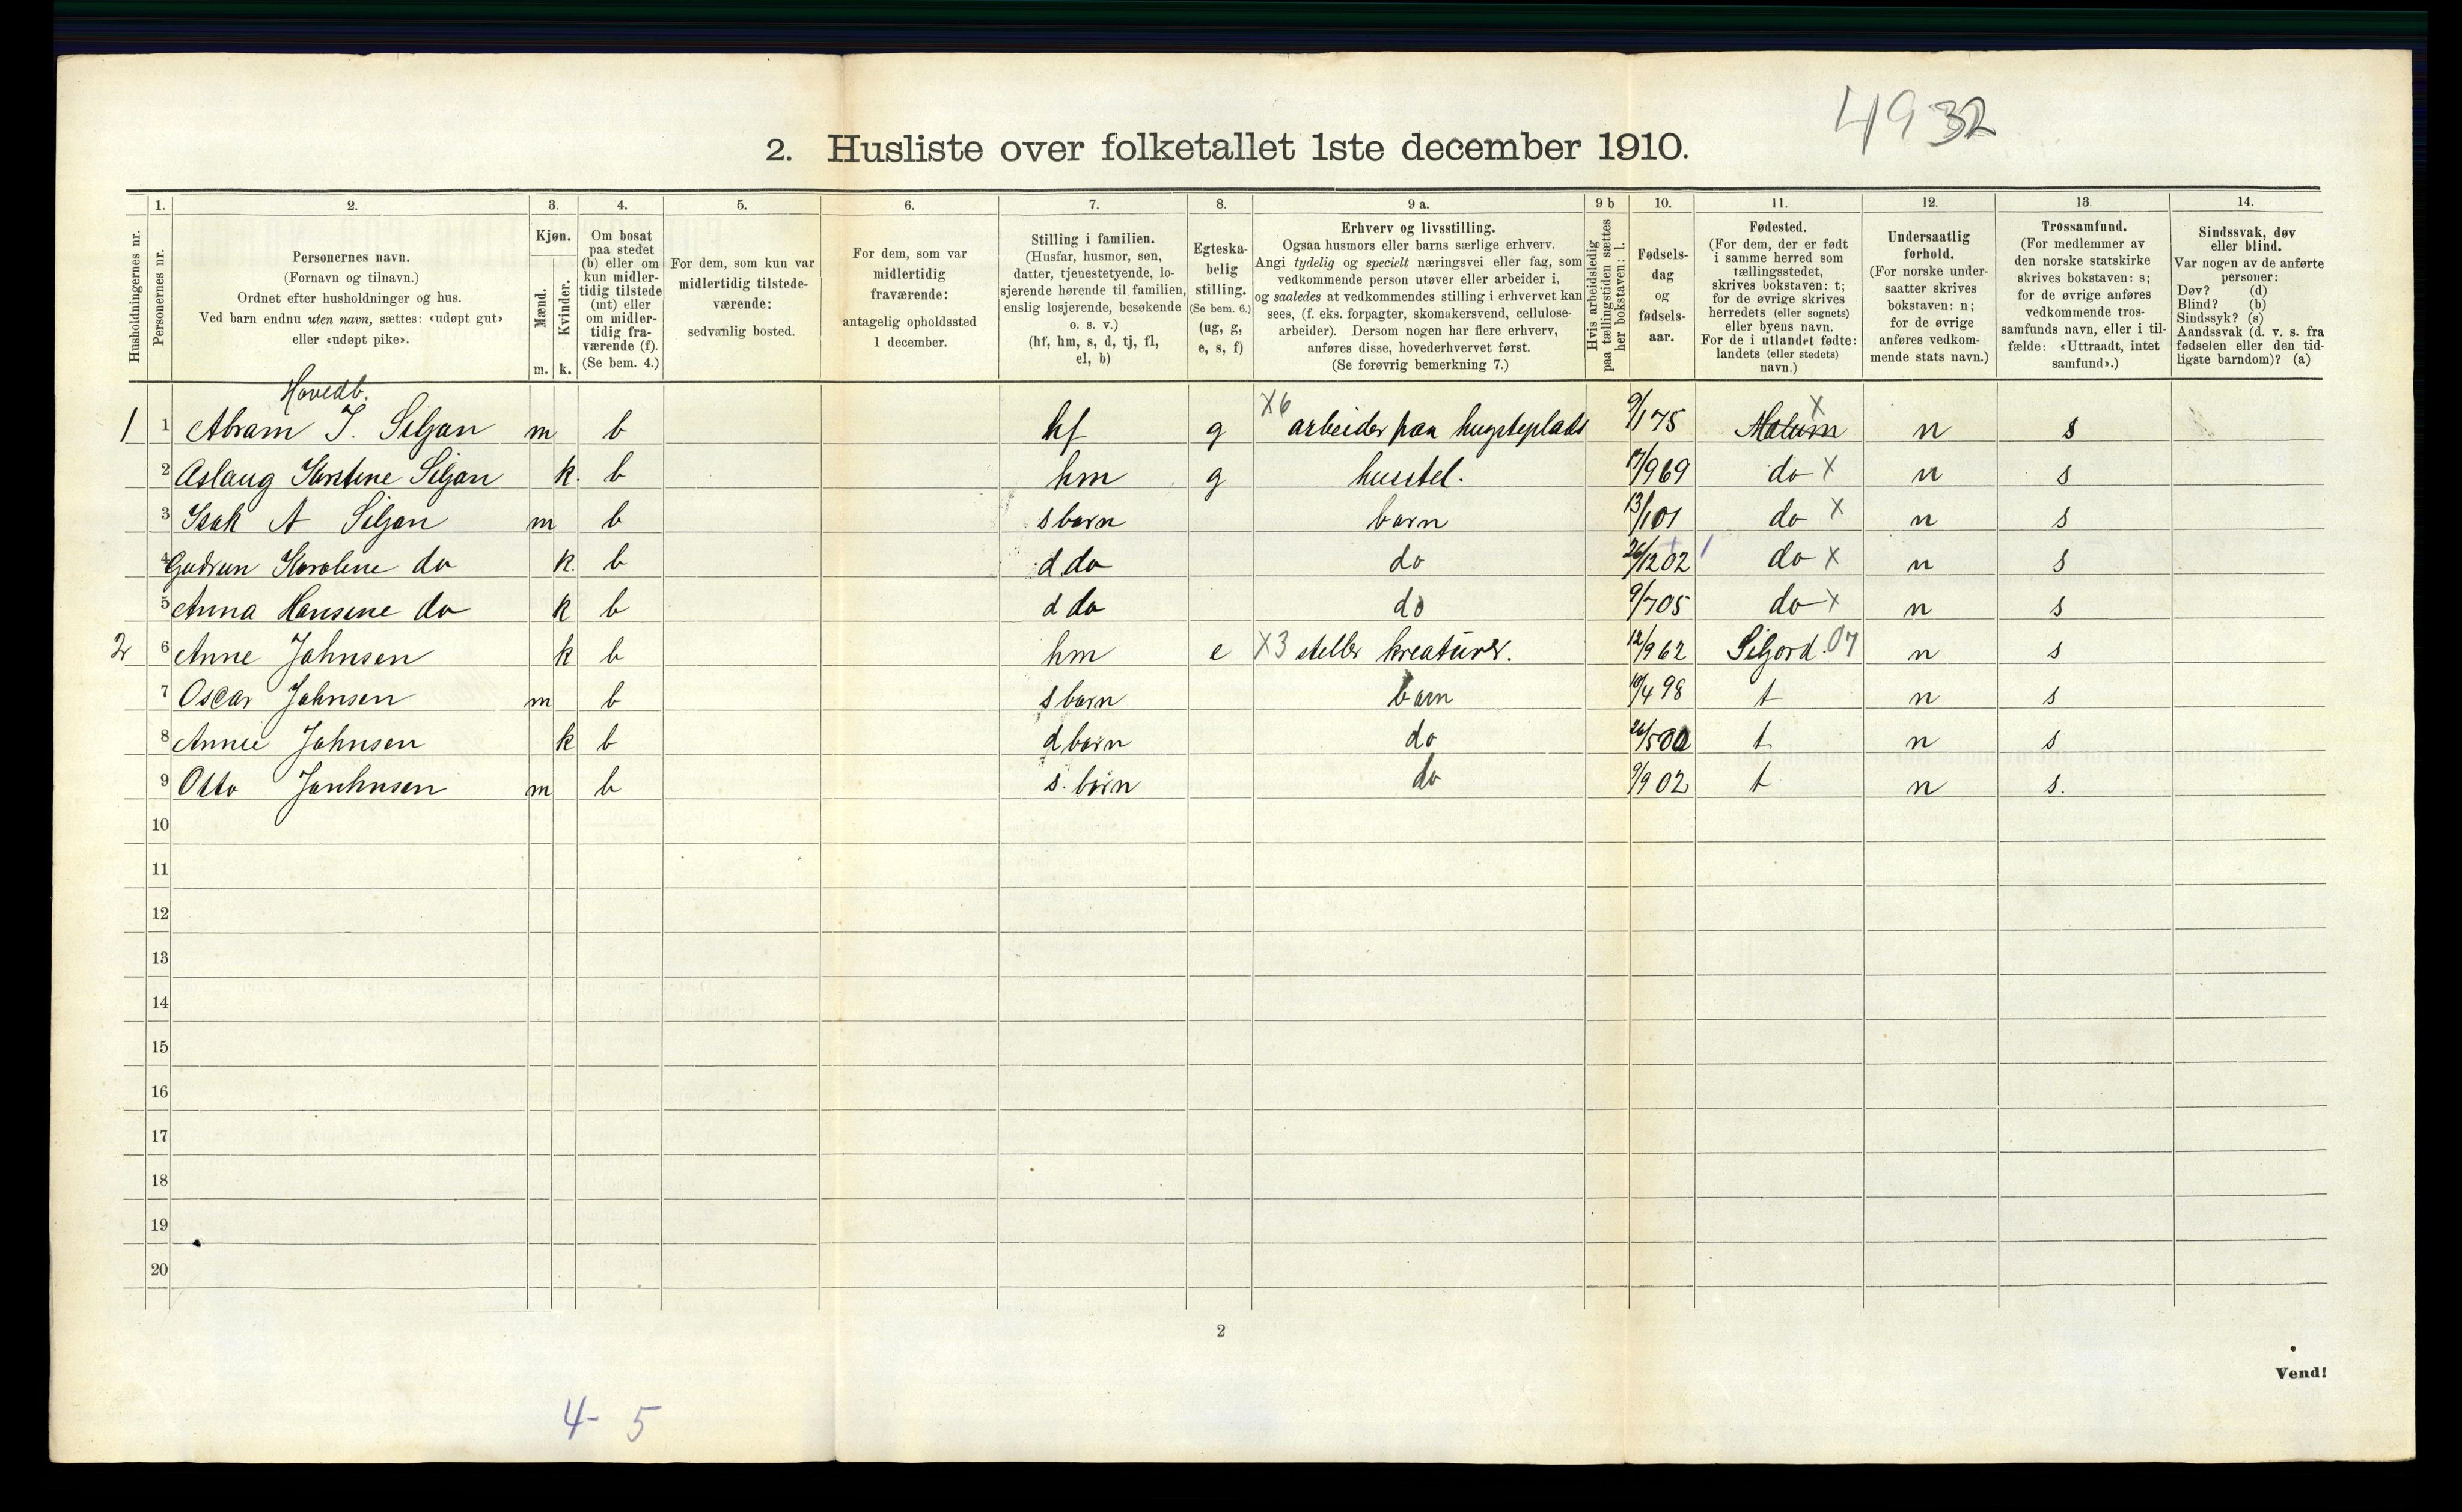 4932
2. Husliste over folketallet 1ste december 1910.
Husholdningernes nr.
1.
Personernes nr.
2.
Personernes navn.
(Fornavn og tilnavn.)
Ordnet efter husholdninger og hus.
Ved barn endnu uten navn, sættes: «udøpt gut»
eller «udøpt pike».
3.
Kjøn.
Mænd.
Kvinder.
m. k.
4.
Om bosat
paa stedet
(b) eller om
kun midler-
tidig tilstede
(mt) eller
om midler-
tidig fra-
værende (f).
(Se bem. 4.)
5.
For dem, som kun var
midlertidig tilstede-
værende:
sedvanlig bosted.
6.
For dem, som var
midlertidig
fraværende:
antagelig opholdssted
1 december.
7.
Stilling i familien.
(Husfar, husmor, søn,
datter, tjenestetyende, lo-
sjerende hørende til familien,
enslig losjerende, besøkende
o. s. v.)
(hf, hm, s, d, tj, fl,
el, b)
8.
Egteska-
belig
stilling.
(Se bem. 6.)
(ug, g,
e, s, f)
9 a.
Erhverv og livsstilling.
Ogsaa husmors eller barns særlige erhverv.
Angi tydelig og specielt næringsvei eller fag, som
vedkommende person utøver eller arbeider i,
og saaledes at vedkommendes stilling i erhvervet kan
sees, (f. eks. forpagter, skomakersvend, cellulose-
arbeider). Dersom nogen har flere erhverv,
anføres disse, hovederhvervet først.
(Se forøvrig bemerkning 7.)
9 b
Hvis arbeidsledig
paa tællingstiden sættes
her bokstaven: l.
10.
Fødsels-
dag
og
fødsels-
aar.
11.
Fødested.
(For dem, der er født
i samme herred som
tællingsstedet,
skrives bokstaven: t;
for de øvrige skrives
herredets (eller sognets)
eller byens navn.
For de i utlandet fødte:
landets (eller stedets)
navn.)
12.
Undersaatlig
forhold.
(For norske under-
saatter skrives
bokstaven: n;
for de øvrige
anføres vedkom-
mende stats navn.)
13.
Trossamfund.
(For medlemmer av
den norske statskirke
skrives bokstaven: s;
for de øvrige anføres
vedkommende tros-
samfunds navn, eller i til-
fælde: «Uttraadt, intet
samfund».)
14.
Sindssvak, døv
eller blind.
Var nogen av de anførte
personer:
Døv? (d)
Blind? (b)
Sindssyk? (s)
Aandssvak (d. v. s. fra
fødselen eller den tid-
ligste barndom)? (a)
Hovedb.
1 1 Abram J. Siljan m b hf g X6 arbeider paa hugsteplads 9/1 75 Malum X n s
2 Aslaug Kirstine Siljan k. b hm g husstel. 17/9 69 do X n s
3 Isak A Siljan m b s barn barn 13/1 01 do X n s
4 Gudrun Karoline do k. b d do do 26/12 02 1 do X n s
5 Anna Hansine do k b d do do 9/7 05 do X n s
2 6 Anne Johnsen k b hm e X3 steller kreaturer. 12/9 62 Siljord. 07 n s
7 Oscar Johnsen m b s barn barn 10/4 98 t n s
8 Annie Johnsen k b d barn do 26/5 00 t n s
9 Otto Jonhnsen m b s. barn do 9/9 02 t n s.
10
11
12
13
14
15
16
17
18
19
20
2
Vend!
4- 5